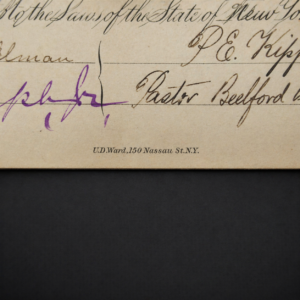 to the Laws of the State of New York
lman P. E. Kipp
ph Jr Pastor Bedford
U.D.Ward, 150 Nassau St. N.Y.